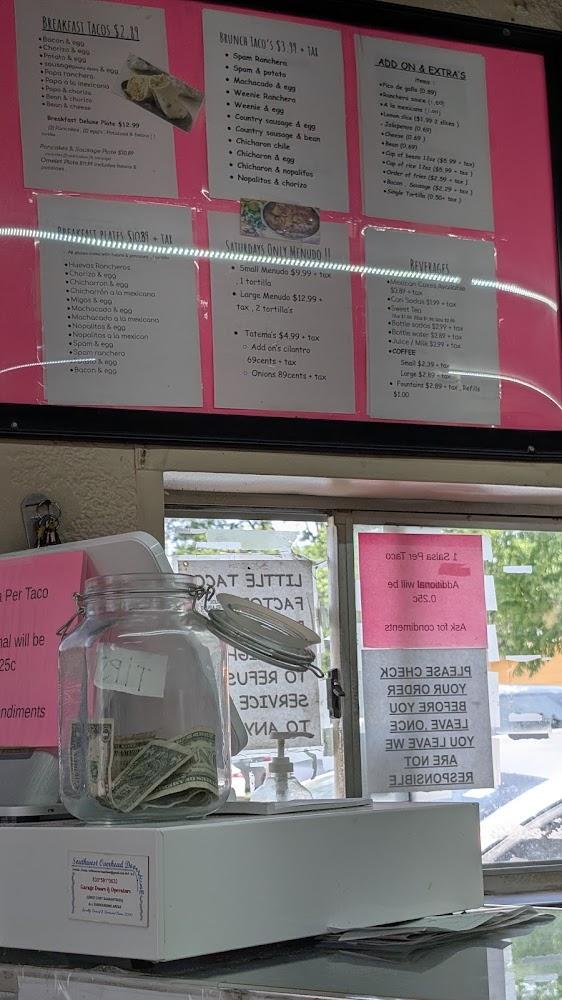 BREAKFAST TACOS $2.89
•Bacon & egg
•Chorizo & egg
•Potato & egg
•Papa ranchero
•Papa a la mexicana
•Papa & chorizo
•Bean & chorizo
•Bean & cheese
Breakfast Deluxe Plate $12.99
Pancakes & Sausage Plate $10.89
BRUNCH TACO'S $3.99 + TAX
• Spam Ranchera
• Spam & potato
• Machacado & egg
• Weenie Ranchera
• Weenie & egg
• Country sausage & egg
• Country sausage & bean
• Chicharon chile
• Chicharon & egg
• Chicharon & nopalitos
• Nopalitos & chorizo
ADD ON & EXTRA'S
Items :
•Pico de gallo (0.89)
•Ranchero sauce (1.69)
•A la mexicana (1.69)
•Lemon slice ($1.99 2 slices )
•Jalapenos (0.69)
•Cheese (0.69 )
•Bean (0.69)
•Cup of beans 12oz ($5.99 + tax)
•Cup of rice 12oz ($5.99 + tax )
•Order of fries ($2.59 + tax )
•Bacon Sausage ($2.29 + tax )
•Single Tortilla (0.50+ tax )
BREAKFAST PLATES $10.89 + TAX
•Huevos Rancheros
•Chorizo & egg
•Chicharron & egg
•Chicharrón a la mexicana
•Migas & egg
•Machacado & egg
•Machacado a la mexicana
•Nopalitos & egg
•Nopalitos a la mexican
•Spam & egg
•Spam ranchero
& egg
•Bacon & egg
SATURDAYS ONLY MENUDO !!
• Small Menudo $9.99 + tax
, 1 tortilla
• Large Menudo $12.99 +
tax , 2 tortilla's
• Tatema's $4.99 + tax
○ Add on's cilantro
69cents + tax
○ Onions 89cents + tax
BEVERAGES
•Mexican Cokes Available
$3.89 + tax
•Can Sodas $1.99 + tax
•Sweet Tea
•Bottle sodas $2.99 + tax
•Bottle water $2.89 + tax
•Juice / Milk $2.99 + tax
•COFFEE
Small $2.39 + tax
Large $2.89 + tax
• Fountains $2.89 + tax , Refills
$1.00
Per Taco
nal will be
25c
ndiments
TIPS
LITTLE TACO
FACTO
TO REFUS
SERVICE
TO ANY
1 Salsa Per Taco
Additional will be
0.25c
Ask for condiments
PLEASE CHECK
YOUR ORDER
BEFORE YOU
LEAVE. ONCE
YOU LEAVE WE
ARE NOT
RESPONSIBLE
Southwest Overhead Do
Garage Doors & Operators